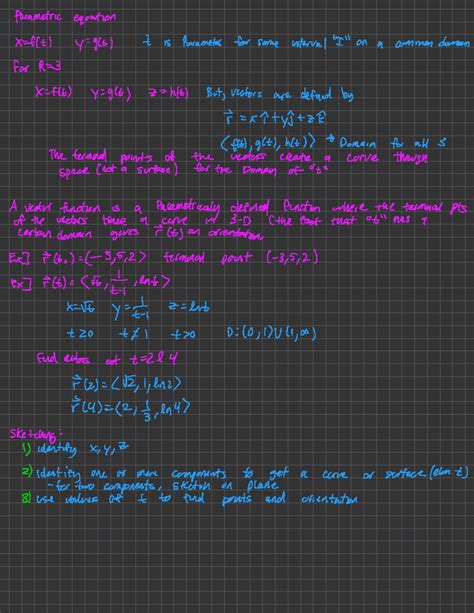 Parametric equation
x=f(t) y=g(t) t is Parameter for some interval "I" on a common domain
For R=3
x=f(t) y=g(t) z=h(t) But, vectors are defined by
r⃗ = xî+yĵ+zk̂
⟨f(t), g(t), h(t)⟩ → Domain for all 3
The terminal points of the vectors create a curve through
space (not a surface) for the Domain of "t"
A vector function is a Parametrically defined function where the terminal pts
of the vectors trace a curve in 3-D (the fact that "t" has a
certain domain gives r⃗(t) an orientation
Ex] r⃗(t₀)=⟨-3,5,2⟩ terminal point (-3,5,2)
Ex] r⃗(t)=⟨√t, 1/(t-1), ln t⟩
x=√t y=1/(t-1) z=ln t
t≥0 t≠1 t>0 D:(0,1)∪(1,∞)
Find vectors at t=2 & 4
r⃗(2)=⟨√2, 1, ln2⟩
r⃗(4)=⟨2, 1/3, ln4⟩
Sketching:
1) identify x, y, z
2) identify one or more components to get a curve or surface (elim t)
-for two components, sketch on plane
3) use values of t to find points and orientation